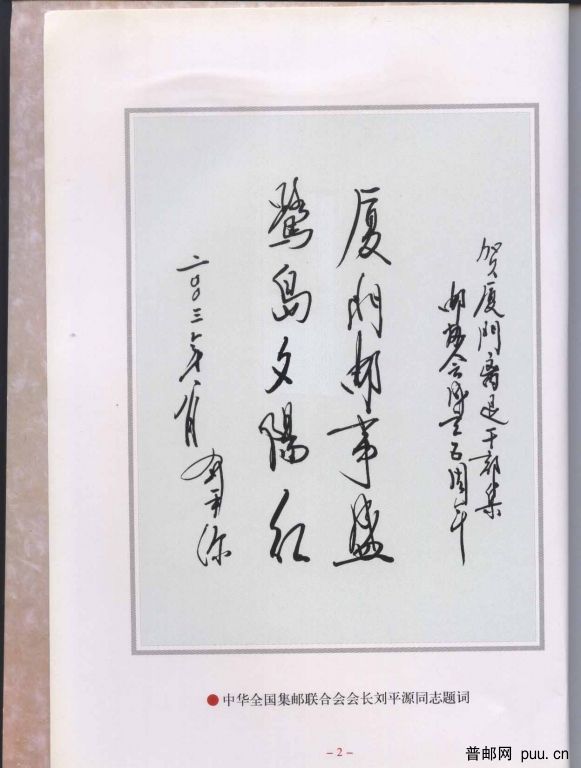 贺厦门离退干部集
邮协会成立五周年
厦门邮事盛
鹭岛夕陽红
二〇〇三年八月
刘平源
中华全国集邮联合会会长刘平源同志题词
－2－
普邮网 puu.cn